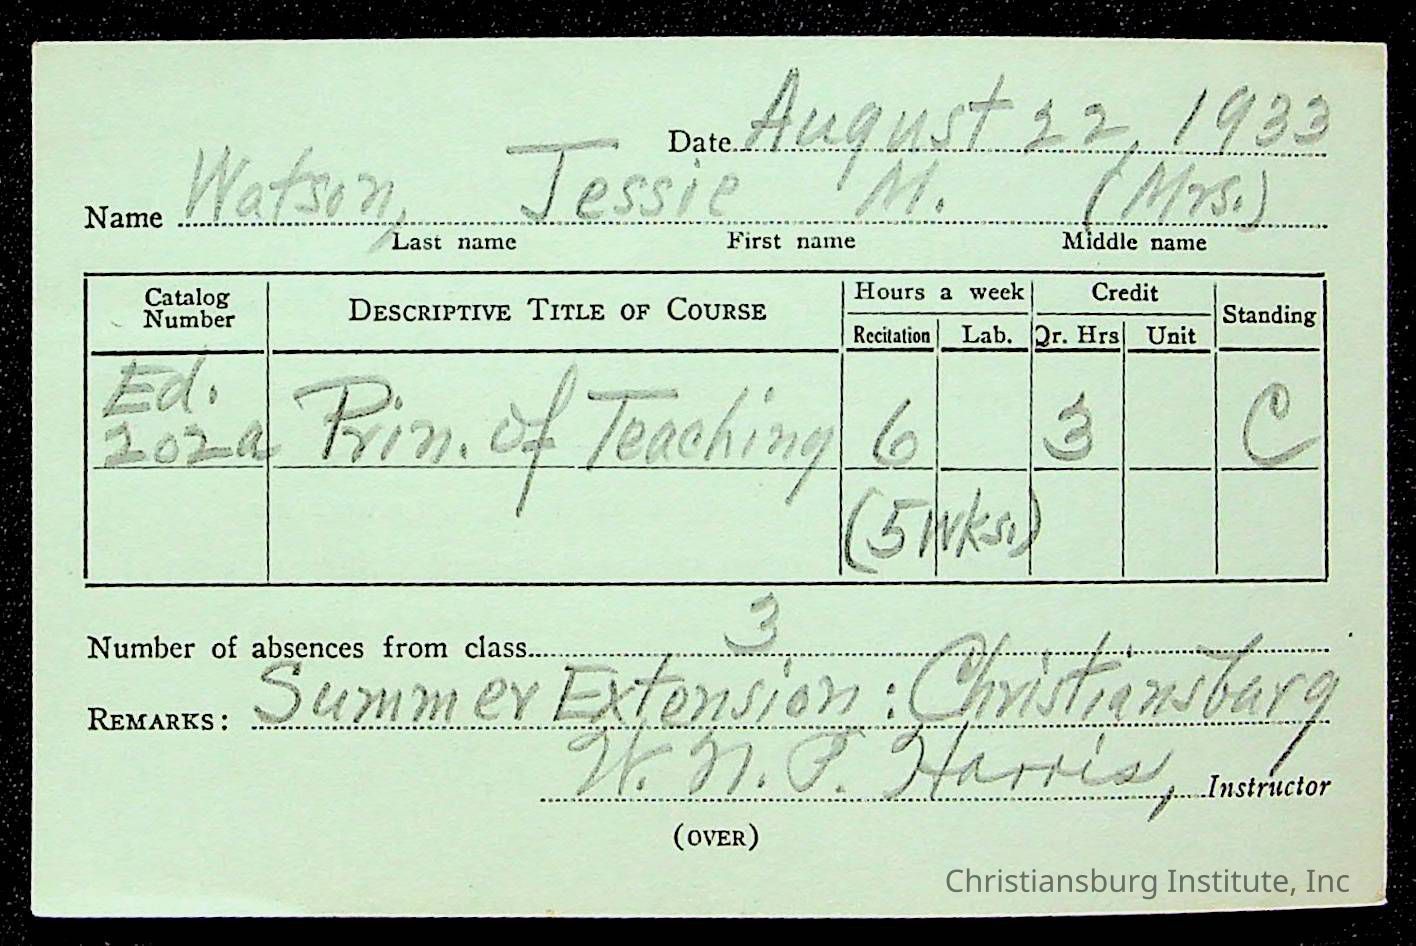 Date August 22, 1933
Name Watson, Jessie M. (Mrs.)
Last name First name Middle name
Catalog Number DESCRIPTIVE TITLE OF COURSE Hours a week Credit Standing
Recitation Lab. Qr. Hrs Unit
Ed. 202a Prin. of Teaching 6 3 C
(5 wks.)
Number of absences from class 3
REMARKS: Summer Extension: Christiansburg
W. N. P. Harris, Instructor
(OVER)
Christiansburg Institute, Inc